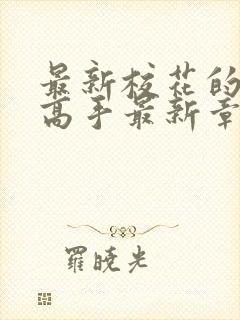 最新校花的
高手最新章
羅曉光